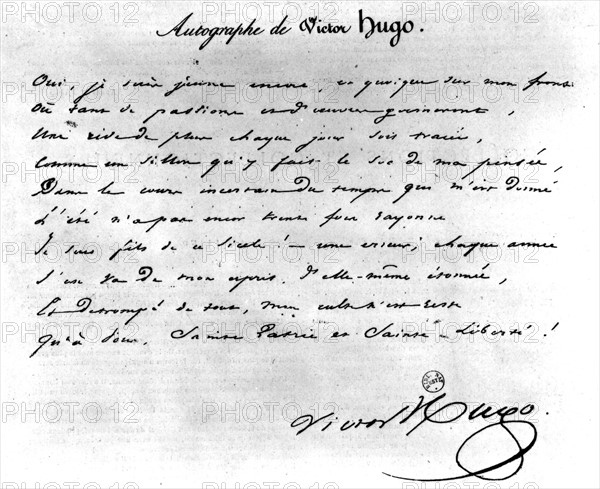 Autographe de Victor Hugo.
Oui, je suis jeune encore, et quoique sur mon front
Où tant de passions et d'œuvres germeront,
Une ride de plus chaque jour soit tracée,
Comme un sillon qu'y fait le soc de ma pensée,
Dans le cours incertain du temps qui m'est donné
L'été n'a pas encor trente fois rayonné
Je suis fils de ce siècle ! – une erreur, chaque année
S'en va de mon esprit, d'elle-même étonnée,
Et détrompé de tout, mon culte n'est resté
Qu'à vous, Sainte Patrie et Sainte Liberté !
Victor Hugo.
PHOTO 12